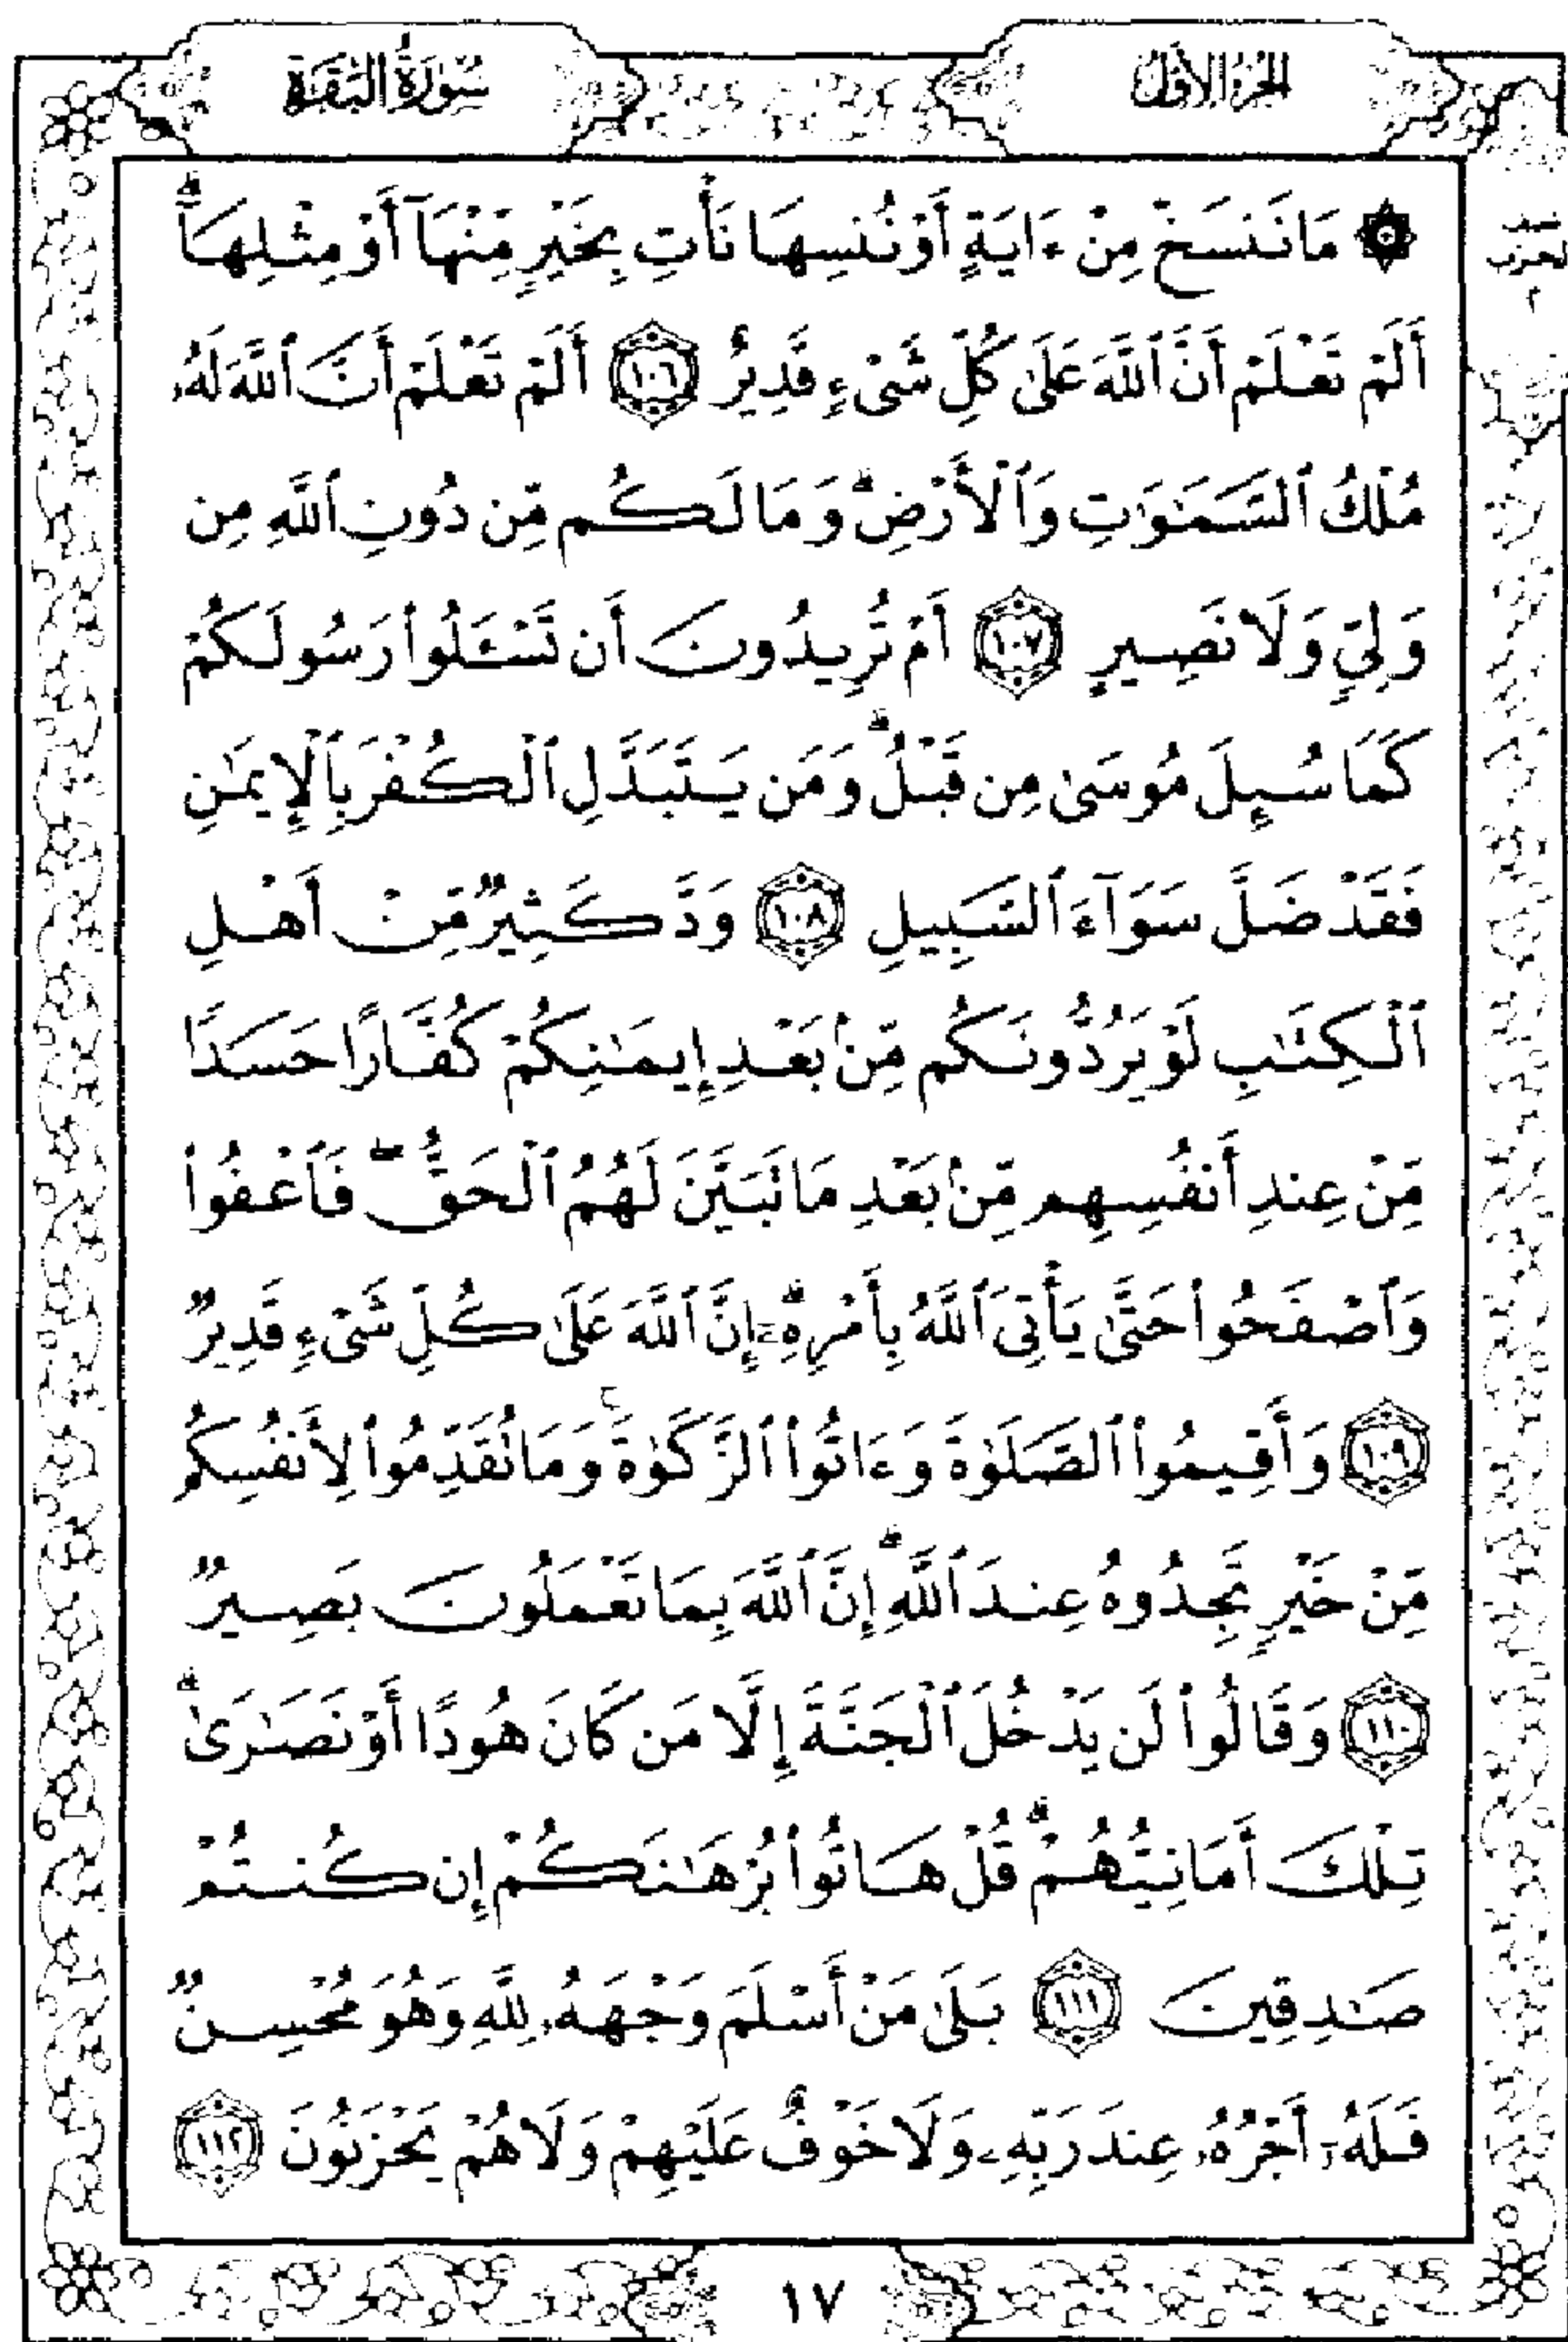 الجزء الأول
سورة البقرة
نصف
الحزب
٢
۞ مَا نَنسَخْ مِنْ ءَايَةٍ أَوْ نُنسِهَا نَأْتِ بِخَيْرٍ مِّنْهَآ أَوْ مِثْلِهَآ ۗ
أَلَمْ تَعْلَمْ أَنَّ ٱللَّهَ عَلَىٰ كُلِّ شَىْءٍ قَدِيرٌ ١٠٦ أَلَمْ تَعْلَمْ أَنَّ ٱللَّهَ لَهُۥ
مُلْكُ ٱلسَّمَـٰوَٰتِ وَٱلْأَرْضِ ۗ وَمَا لَكُم مِّن دُونِ ٱللَّهِ مِن
وَلِىٍّ وَلَا نَصِيرٍ ١٠٧ أَمْ تُرِيدُونَ أَن تَسْـَٔلُوا۟ رَسُولَكُمْ
كَمَا سُئِلَ مُوسَىٰ مِن قَبْلُ ۗ وَمَن يَتَبَدَّلِ ٱلْكُفْرَ بِٱلْإِيمَـٰنِ
فَقَدْ ضَلَّ سَوَآءَ ٱلسَّبِيلِ ١٠٨ وَدَّ كَثِيرٌ مِّنْ أَهْلِ
ٱلْكِتَـٰبِ لَوْ يَرُدُّونَكُم مِّنۢ بَعْدِ إِيمَـٰنِكُمْ كُفَّارًا حَسَدًا
مِّنْ عِندِ أَنفُسِهِم مِّنۢ بَعْدِ مَا تَبَيَّنَ لَهُمُ ٱلْحَقُّ ۖ فَٱعْفُوا۟
وَٱصْفَحُوا۟ حَتَّىٰ يَأْتِىَ ٱللَّهُ بِأَمْرِهِۦٓ ۗ إِنَّ ٱللَّهَ عَلَىٰ كُلِّ شَىْءٍ قَدِيرٌ
١٠٩ وَأَقِيمُوا۟ ٱلصَّلَوٰةَ وَءَاتُوا۟ ٱلزَّكَوٰةَ ۚ وَمَا تُقَدِّمُوا۟ لِأَنفُسِكُم
مِّنْ خَيْرٍ تَجِدُوهُ عِندَ ٱللَّهِ ۗ إِنَّ ٱللَّهَ بِمَا تَعْمَلُونَ بَصِيرٌ
١١٠ وَقَالُوا۟ لَن يَدْخُلَ ٱلْجَنَّةَ إِلَّا مَن كَانَ هُودًا أَوْ نَصَـٰرَىٰ ۗ
تِلْكَ أَمَانِيُّهُمْ ۗ قُلْ هَاتُوا۟ بُرْهَـٰنَكُمْ إِن كُنتُمْ
صَـٰدِقِينَ ١١١ بَلَىٰ مَنْ أَسْلَمَ وَجْهَهُۥ لِلَّهِ وَهُوَ مُحْسِنٌ
فَلَهُۥٓ أَجْرُهُۥ عِندَ رَبِّهِۦ وَلَا خَوْفٌ عَلَيْهِمْ وَلَا هُمْ يَحْزَنُونَ ١١٢
١٧